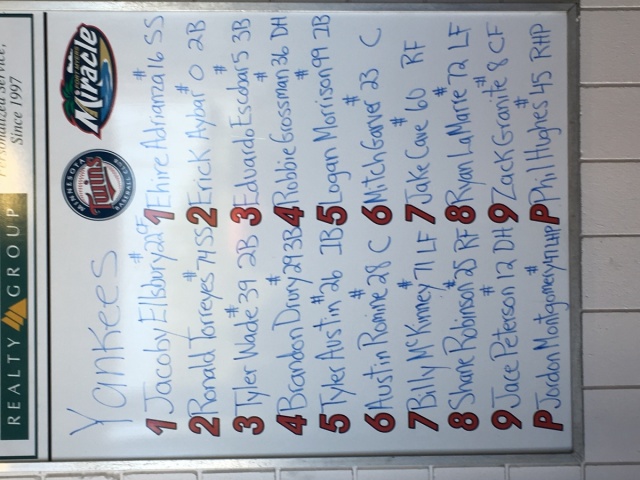 Personalized Service,
Since 1997
REALTY GROUP
Yankees
1 Jacoby Ellsbury #22 CF
2 Ronald Torreyes 74 SS
3 Tyler Wade #39 2B
4 Brandon Drury #29 3B
5 Tyler Austin #26 1B
6 Austin Romine #28 C
7 Billy McKinney #71 LF
8 Shane Robinson #25 RF
9 Jace Peterson #12 DH
P Jordan Montgomery #47 LHP
MINNESOTA
Twins
BASEBALL CLUB
Miracle
1 Ehire Adrianza #16 SS
2 Erick Aybar #0 2B
3 Eduardo Escobar #5 3B
4 Robbie Grossman #36 DH
5 Logan Morrison #99 1B
6 Mitch Garver #23 C
7 Jake Cave #60 RF
8 Ryan LaMarre #72 LF
9 Zack Granite #8 CF
P Phil Hughes #45 RHP